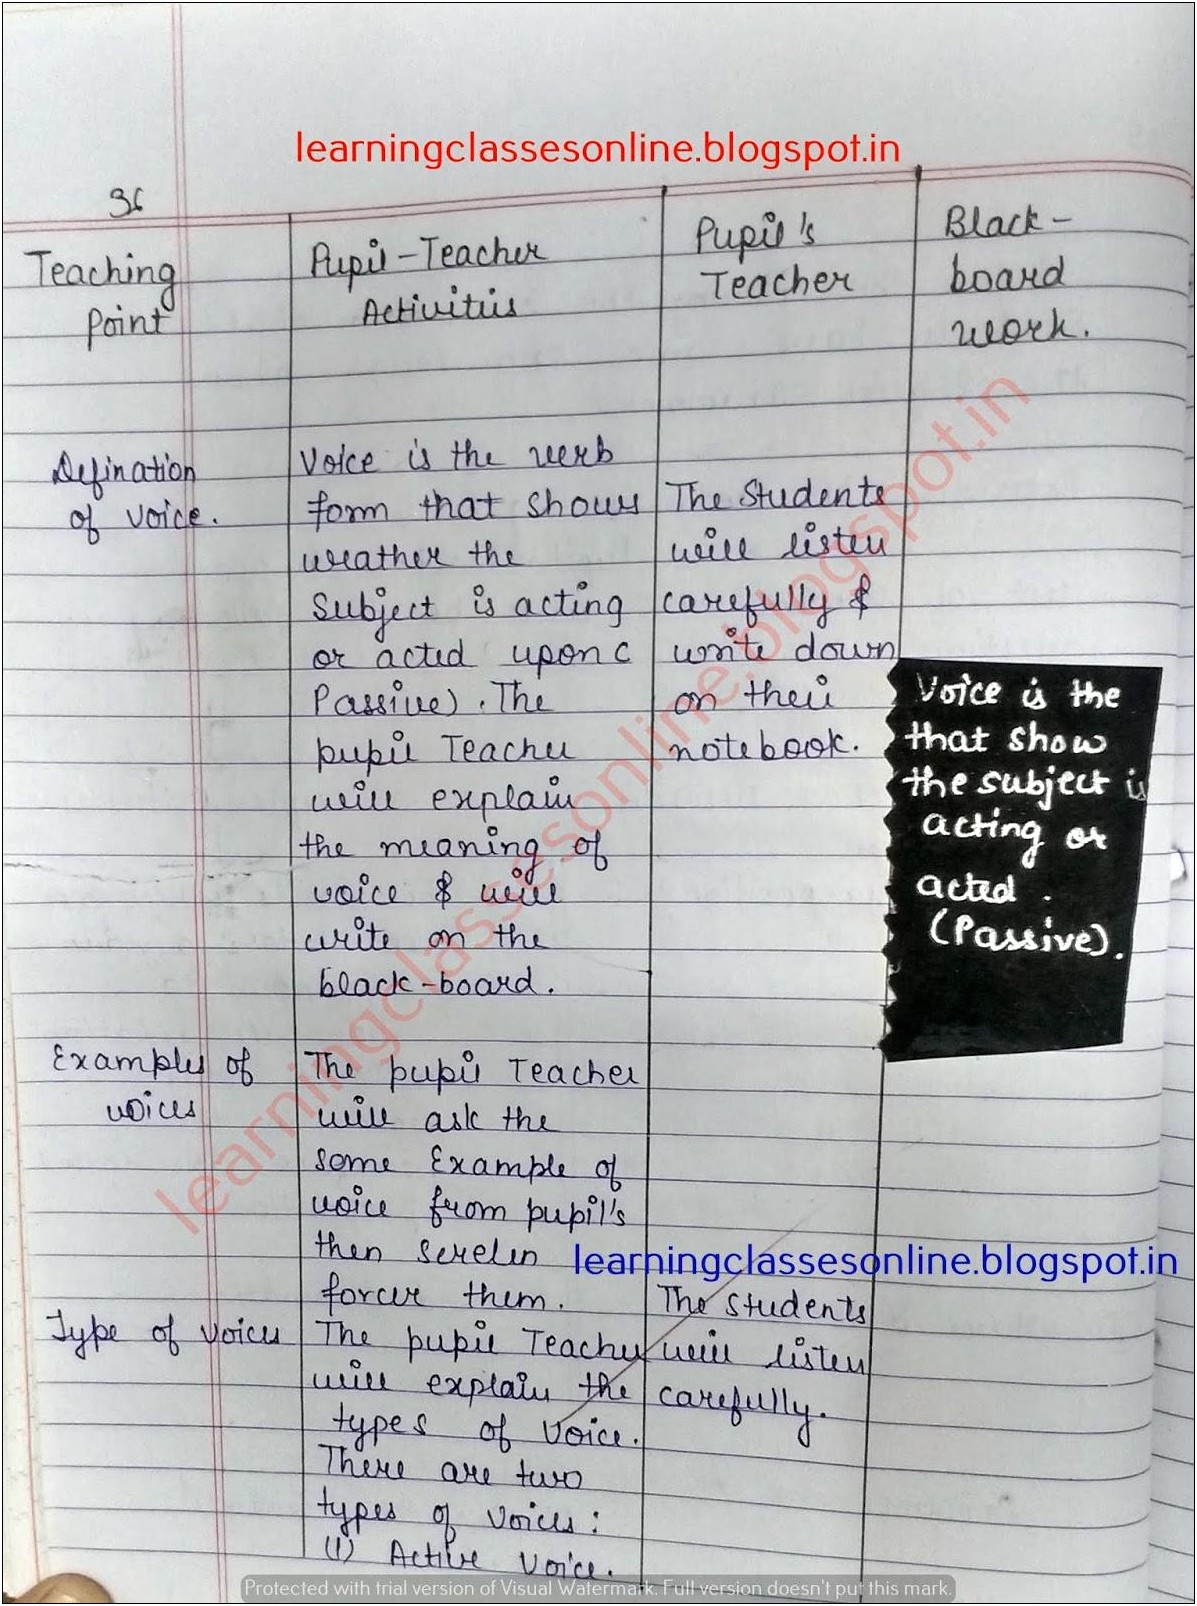 learningclassesonline.blogspot.in
36
Teaching
Point
Pupil-Teacher
Activities
Pupil's
Teacher
Black-
board
work.
Defination
of voice.
Voice is the verb
form that shows
weather the
Subject is acting
or acted upon (
Passive). The
pupil Teacher
will explain
the meaning of
voice & will
write on the
black-board.
The Students
will listen
carefully &
write down
on their
notebook.
Voice is the
that show
the subject is
acting or
acted.
(Passive).
Examples of
voices
The pupil Teacher
will ask the
some Example of
voice from pupil's
then
them.
Type of Voices
The pupil Teacher
will explain the
types of Voice.
There are two
types of Voices:
(1) Active Voice.
The students
will listen
carefully.
learningclassesonline.blogspot.in
learningclassesonline.blogspot.in
Protected with trial version of Visual Watermark. Full version doesn't put this mark.